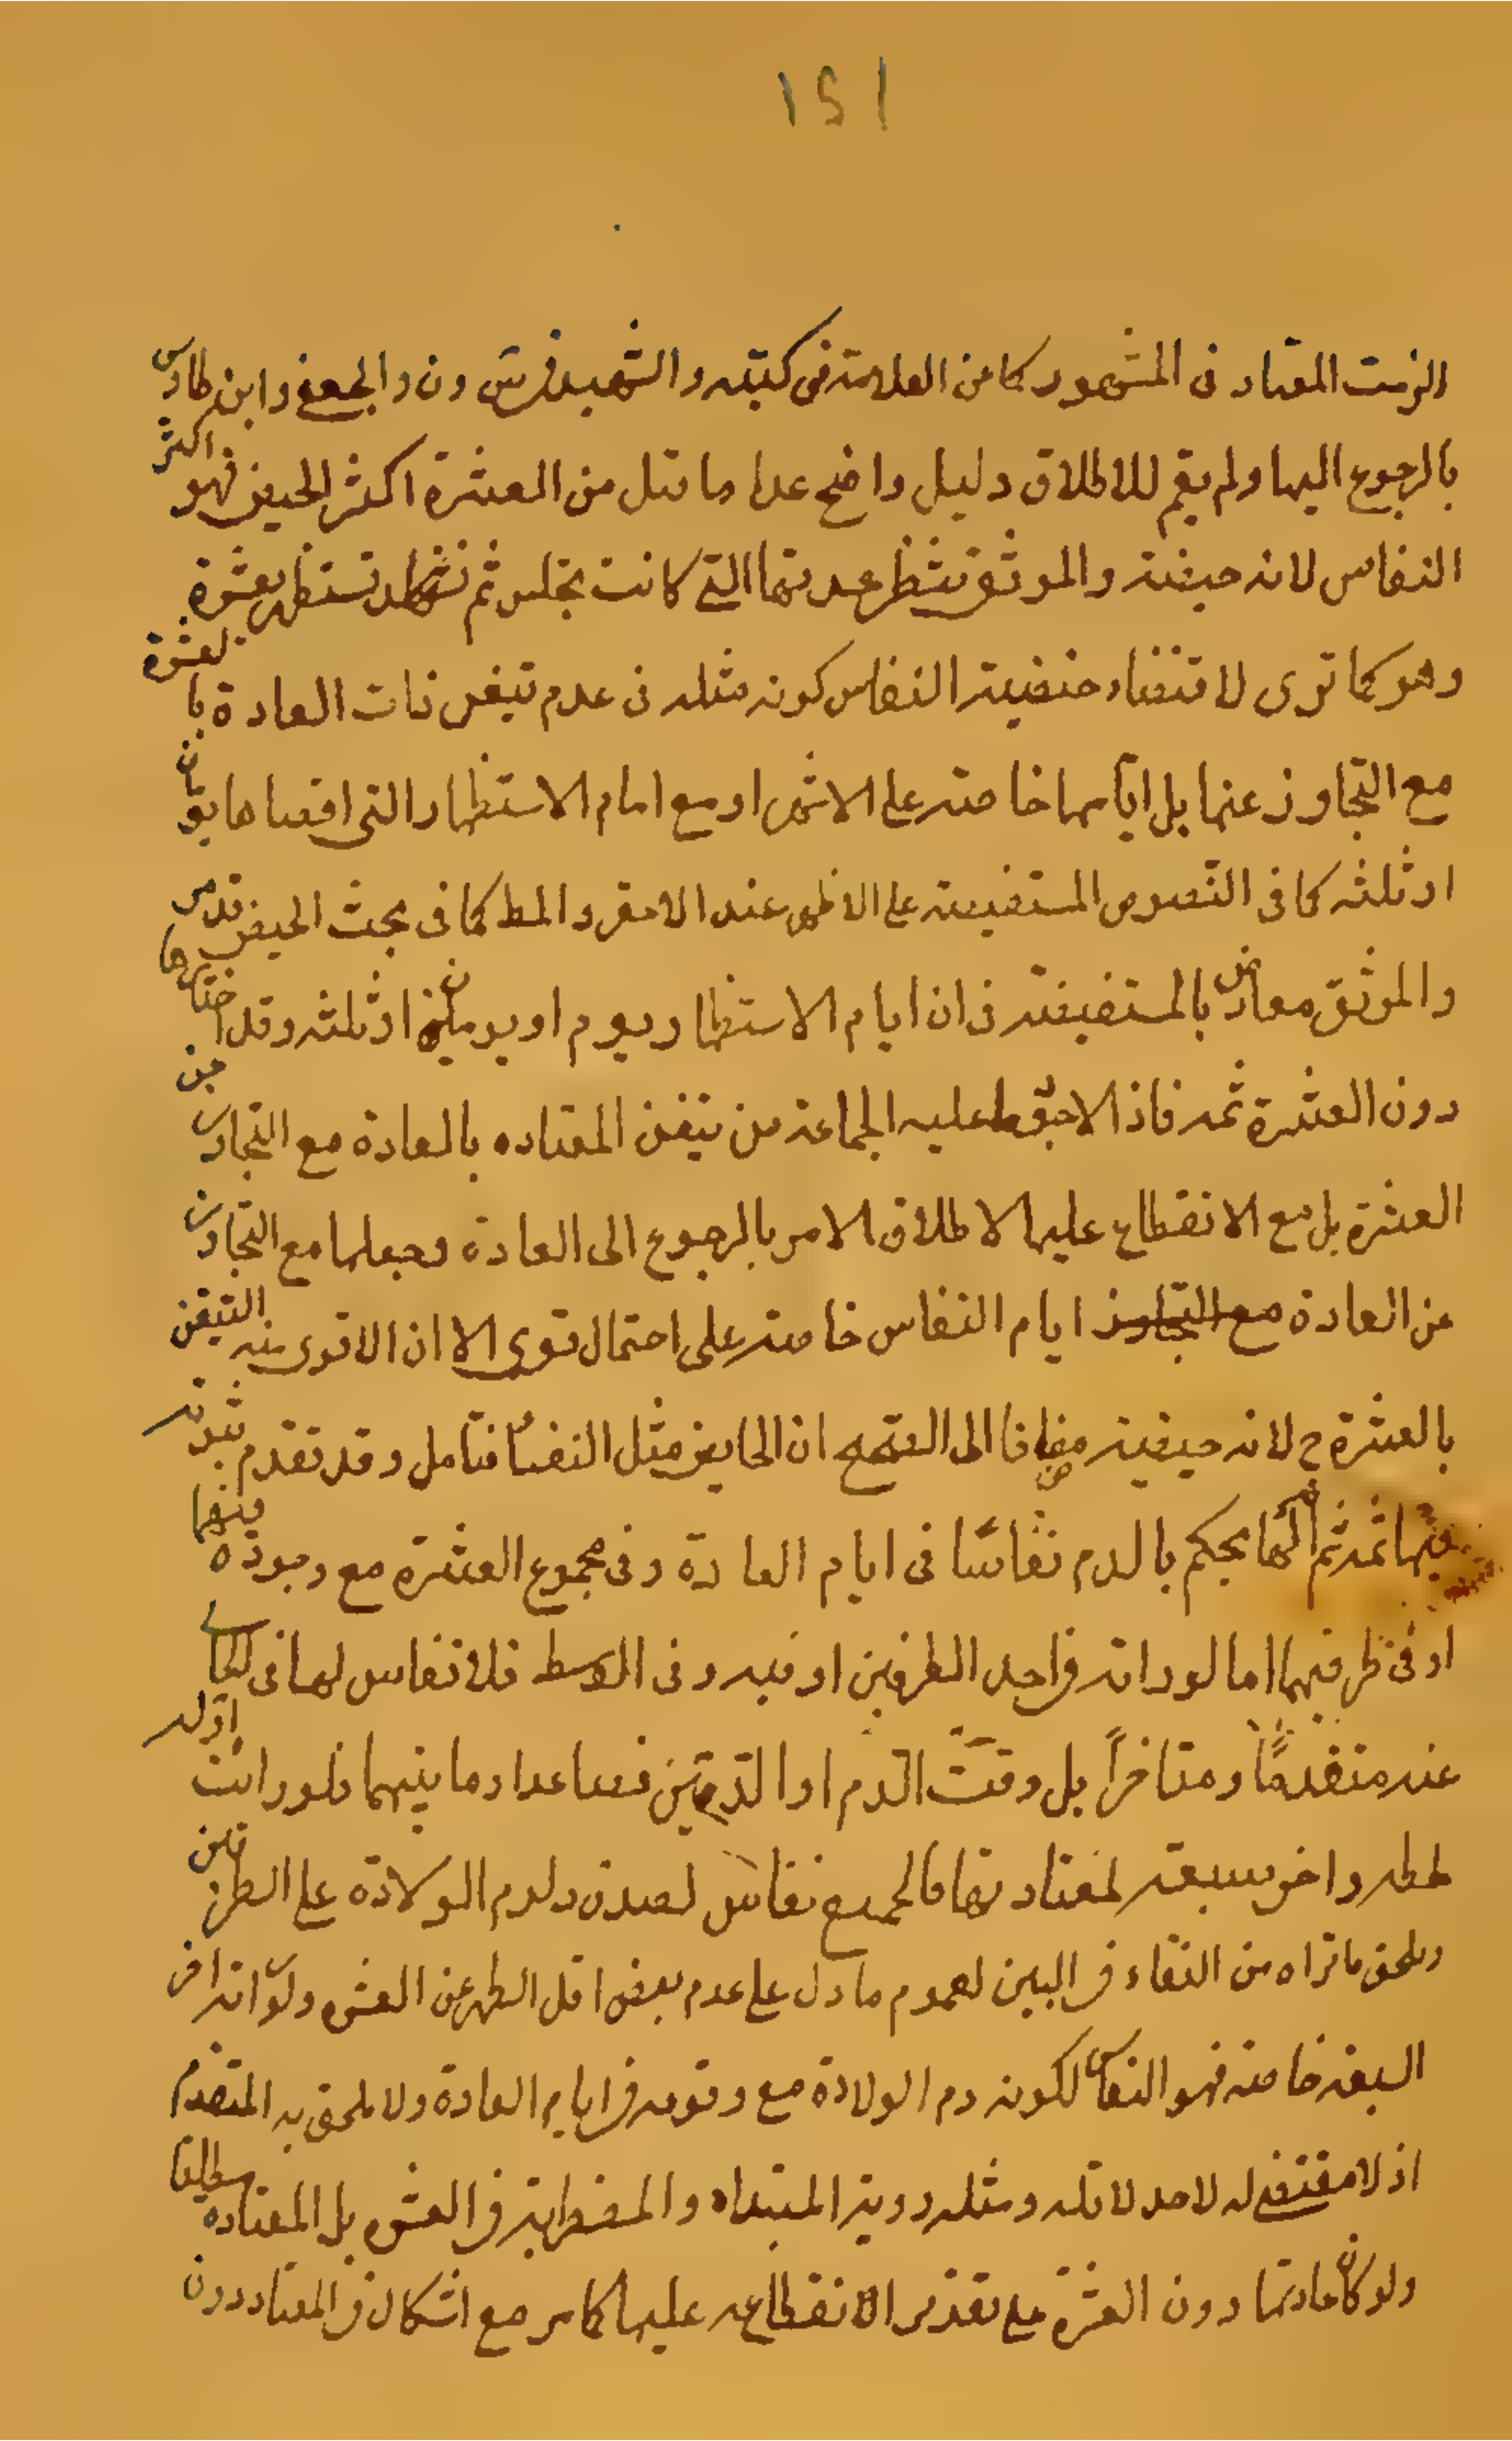 ١٥١
الزمت المعتاد فى المشهور كما عن العلامة فى كتبه والشهيد فى س ون والجعفى وابن طاوس
بالرجوع اليها ولم يقم للاطلاق دليل واضح عدا ما قيل من العشرة اكثر الحيض فهو اكثر
النفاس لانه حيضة والموثق تنتظر عدتها التى كانت تجلس ثم تستظهر بعشرة
وهو كما ترى لاقتضاء حيضية النفاس كونه مثله فى عدم تحيض ذات العادة بالعشرة
مع التجاوز عنها بل ايامها خاصة على الاشهر او مع ايام الاستظهار التى اقصاها يومان
او ثلثه كما فى النصوص المستفيضة على الاظهر عند الاحقر والمط كما فى بحث الحيض قد مر
والموثق معارض بالمستفيضة فى ان ايام الاستظهار يوم او يومين او ثلثه وقد اختارها
دون العشرة ثمه فاذا الاحق ما عليه الجماعة من تحيض المعتاده بالعادة مع التجاوز من
العشرة بل مع الانقطاع عليها لاطلاق الامر بالرجوع الى العادة وجعلها مع التجاوز
عن العادة مع التجاوز ايام النفاس خاصة على احتمال قوى الا ان الاقوى التحيض
بالعشرة ح لانه حيضية مضافا الى الصحيح ان الحايض مثل النفسا فتامل وقد تقدم ثبوته
فيها ثمه ثم انها يحكم بالدم نفاسا فى ايام العادة وفى مجموع العشرة مع وجوده فيهما
او فى طرفيهما اما لو راته فى احد الطرفين او فيه وفى الوسط فلا نفاس لها فى الخا
عنه متقدما ومتاخرا بل وقت الدم او الدمين فصاعدا وما بينهما فلو رات اوله
لحظه واخر سبعة لمعتادتها فالجميع نفاس لصدق دم الولادة على الطرفين
ويلحق ما تراه من النقاء فى البين لعموم ما دل على عدم نقص اقل الطهر عن العشر ولو راته اخر
السبعه خاصه فهو النفاس لكونه دم الولادة مع وقوعه فى ايام العادة ولا يلحق به المتقدم
اذ لا مقتضى له لا حد لاقله ومثله روية المبتداه والمضطربة فى العشر بل المعتاده مطلقا
ولو كان عادتها دون العشرة على تقدير الانقطاع عليها كما مر مع اشكال فى المعتاد دون